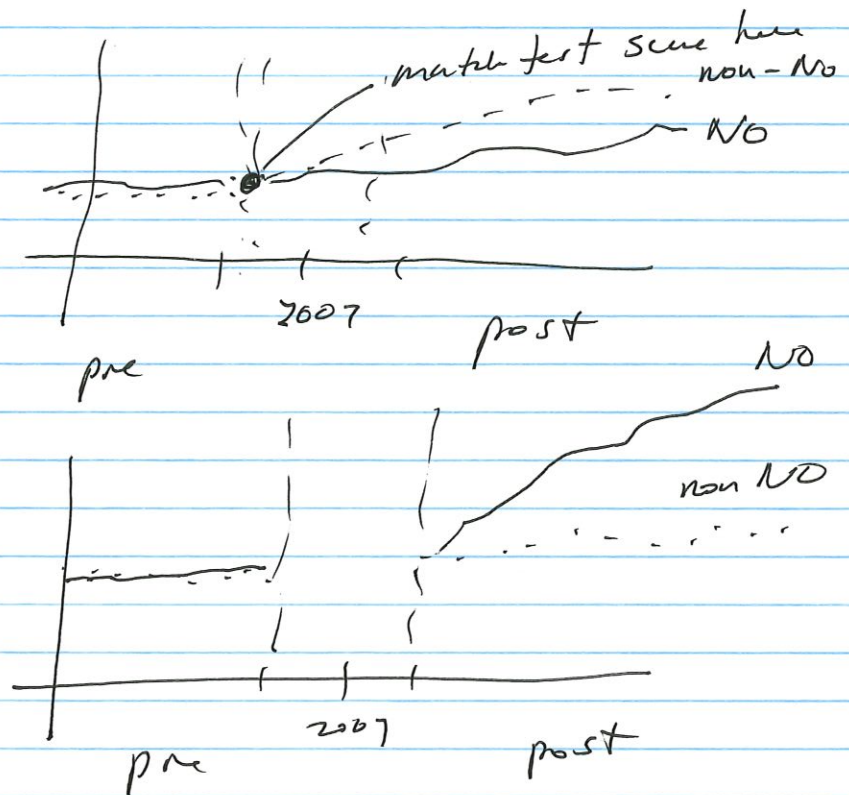 match test score here
non-NO
NO
2007
pre
post
NO
non NO
2007
pre
post